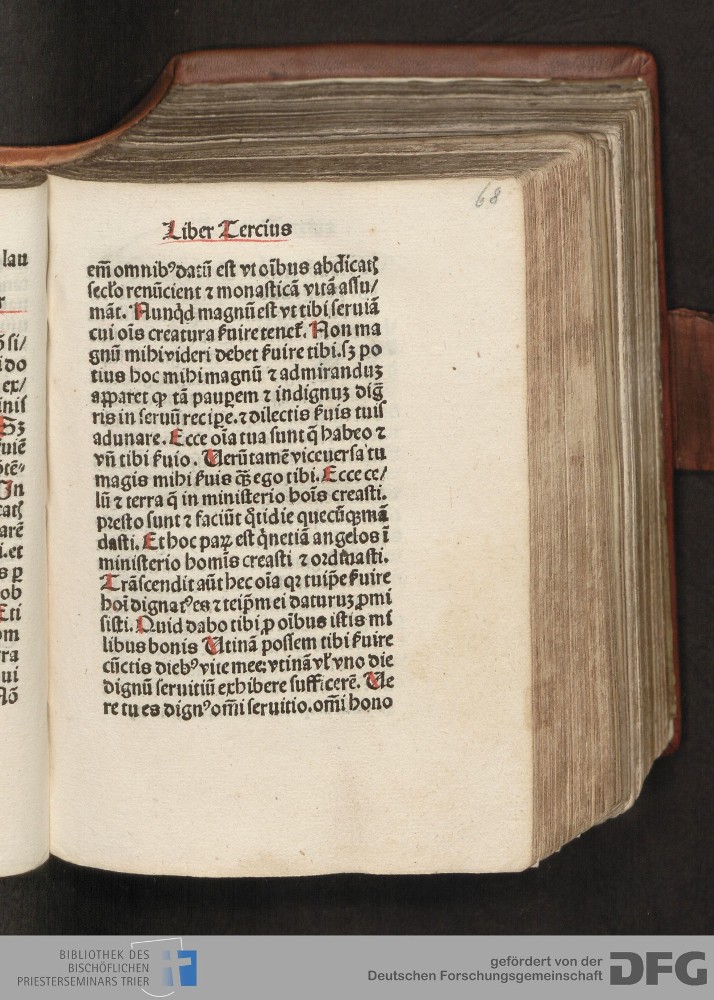 68
Liber Tercius
em̄ omnibꝰ datū est vt oībus abdicatꝭ
secło renūcient ⁊ monasticā vitā assu/
māt. Nunqͥd magnū est vt tibi seruiā
cui oīs creatura ẜuire tenet̉. Non ma
gnū mihi videri debet ẜuire tibi. sꝫ po
tius hoc mihi magnū ⁊ admiranduꝫ
apparet ꝙ tā pauꝑem ⁊ indignuꝫ diḡ
ris in seruū recipe. ⁊ dilectis ẜuis tuis
adunare. Ecce oīa tua sunt q̄ habeo ⁊
vn̄ tibi ẜuio. Verūtamē viceuersa tu
magis mihi ẜuis qꝫ̄ ego tibi. Ecce ce/
lū ⁊ terra q̄ in ministerio hoīs creasti.
presto sunt ⁊ faciūt qͥtidie quecūqꝫ mā
dasti. Et hoc paꝝ est qͥnetiā angelos ī
ministerio homīs creasti ⁊ ordinasti.
Trāscendit aūt hec oīa qꝛ tuip̄e ẜuire
hoī dignatꝰ es ⁊ teip̄m ei daturuꝫ ꝓmi
sisti. Quid dabo tibi ꝓ oībus istis mi
libus bonis Utinā possem tibi ẜuire
cūctis diebꝰ vite mee: vtinā vł vno die
dignū seruitiū exhibere sufficerē. Ve
re tu es dignꝰ om̄i seruitio. om̄i hono
lau
r
ō si/
ī do
ex/
inis
Sꝫ
ẜuiē
ōtē
In
catꝭ
arē
i. et
s ꝑ
ob
Eti
om
rra
ui
Nō
BIBLIOTHEK DES
BISCHÖFLICHEN
PRIESTERSEMINARS TRIER
gefördert von der
Deutschen Forschungsgemeinschaft
DFG